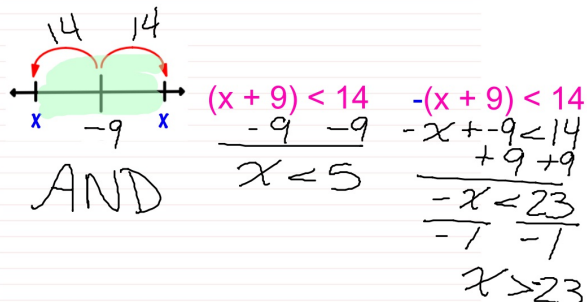 14 14
x -9 x
AND
(x + 9) < 14
-9 -9
x < 5
-(x + 9) < 14
-x + -9 < 14
+9 +9
-x < 23
-1 -1
x > -23